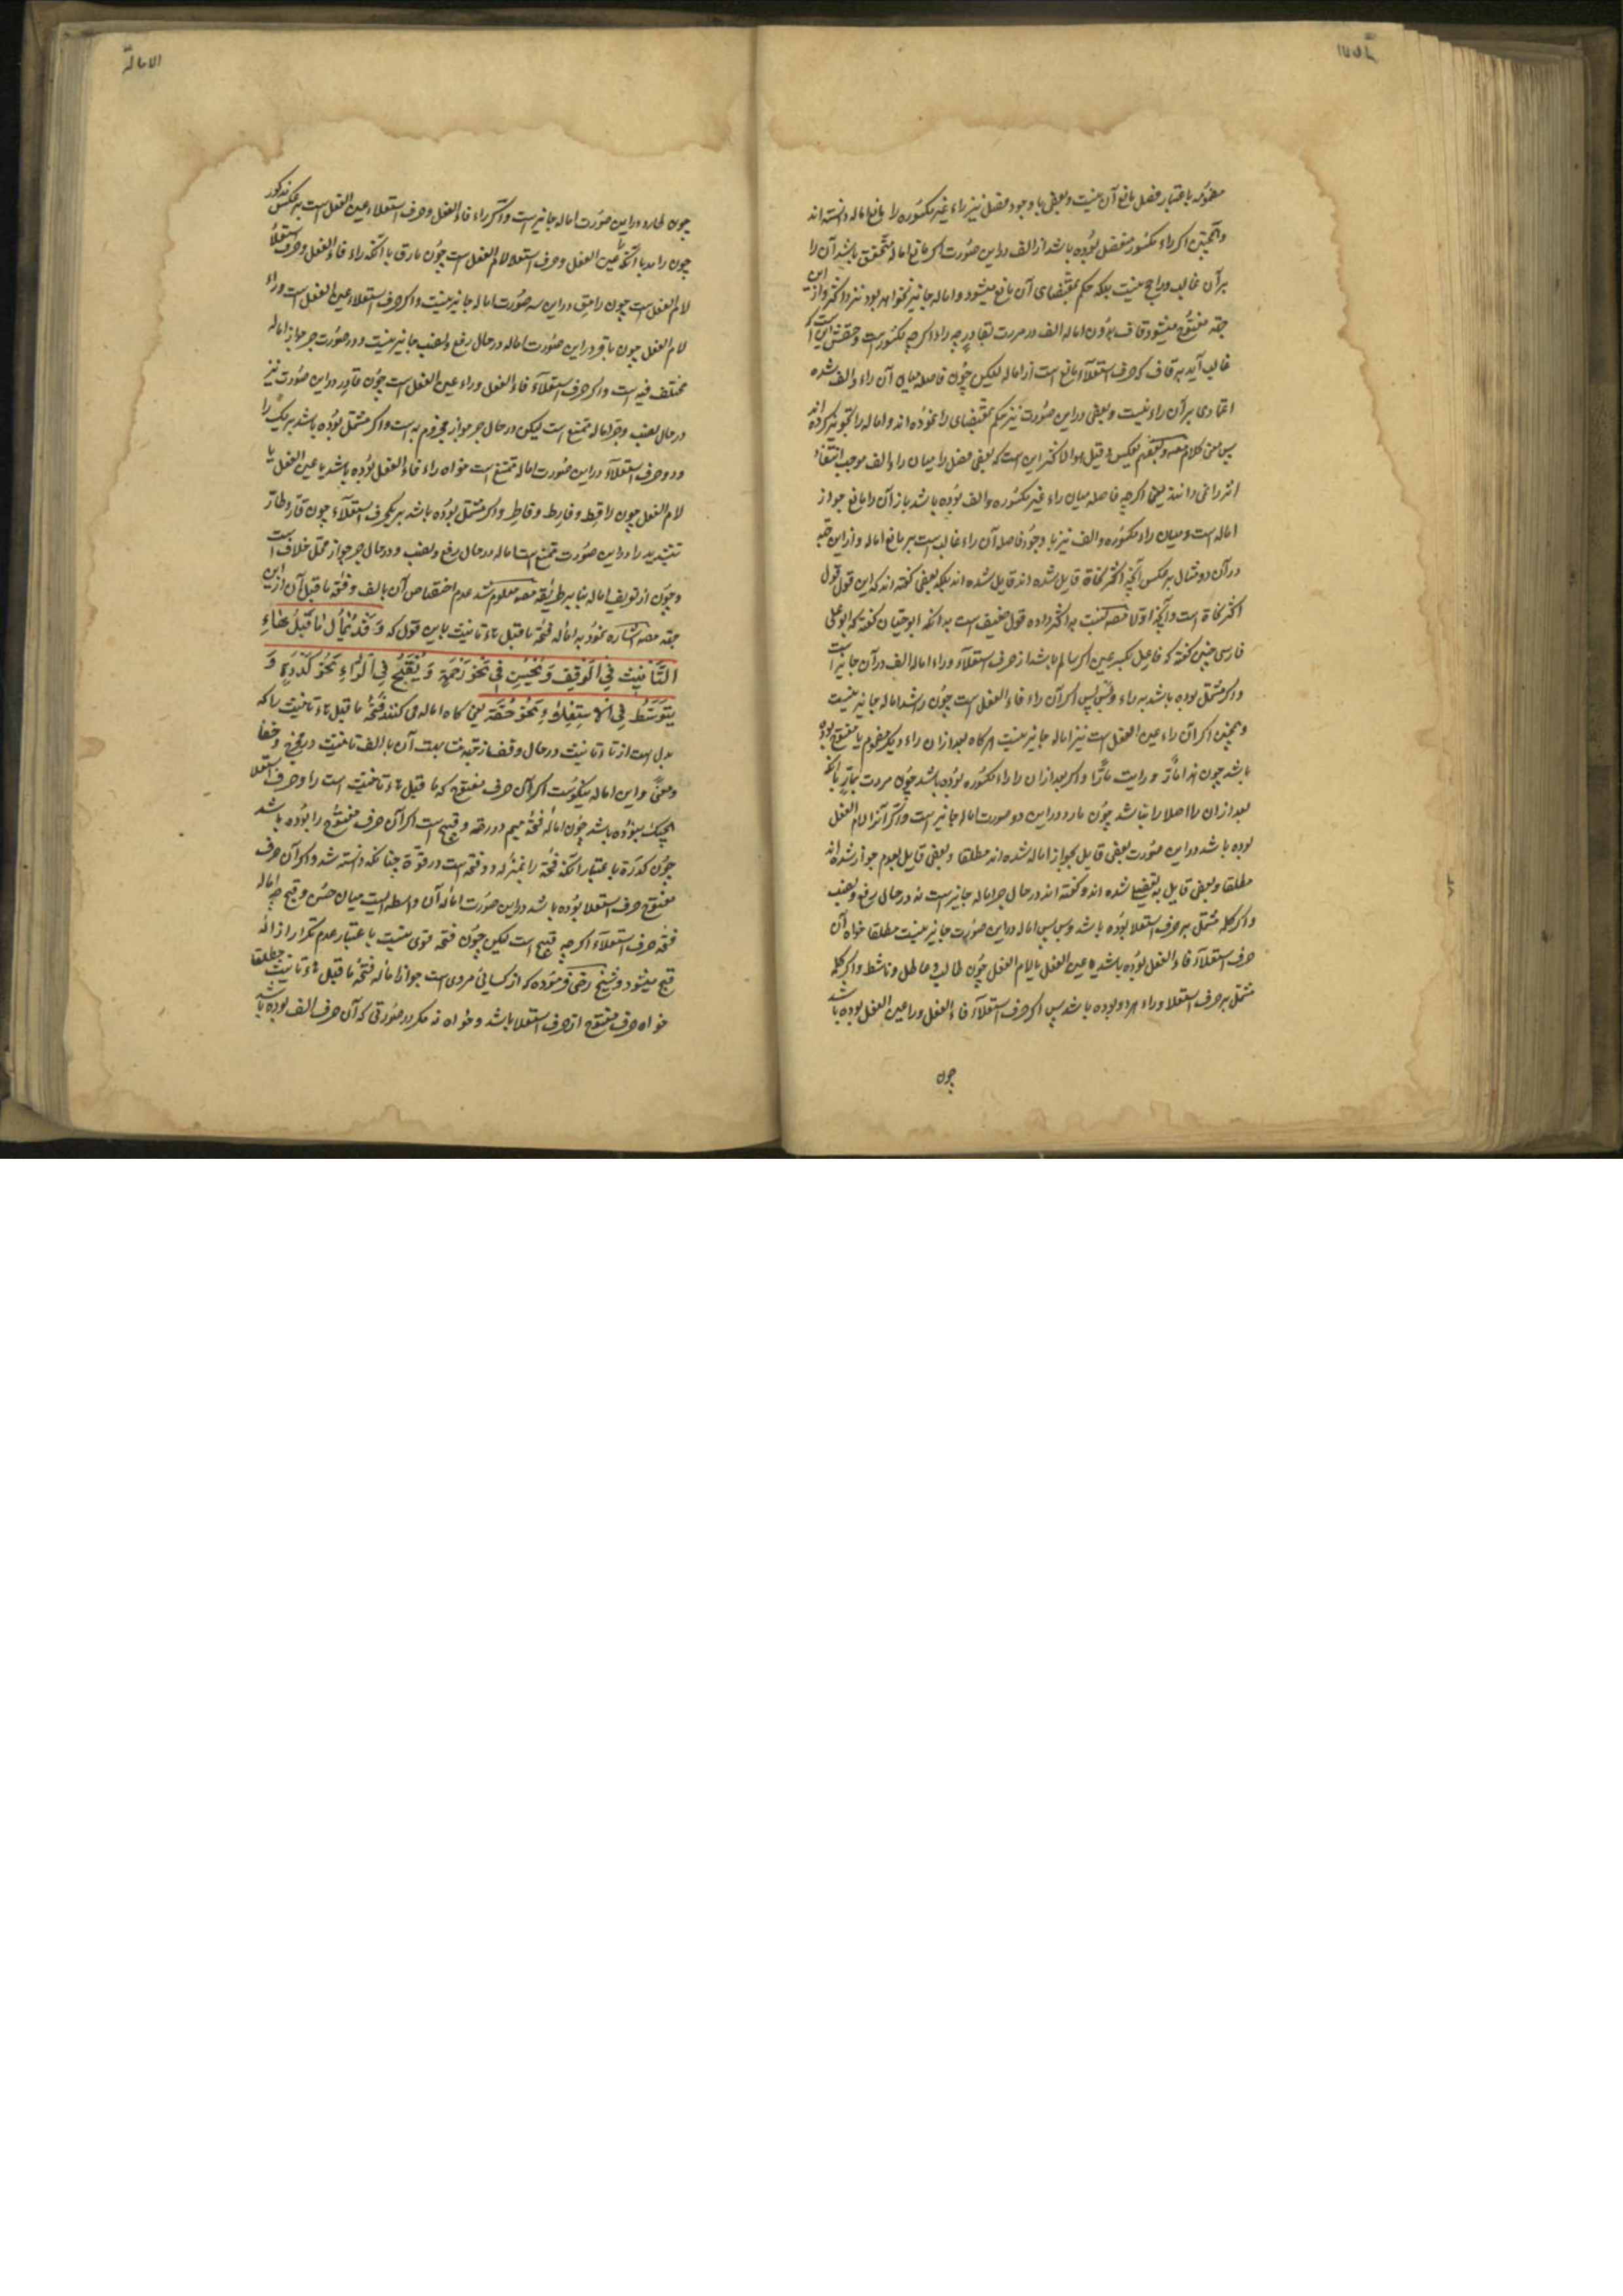 مضمومه باعتبار فصل مانع آن نیست و بعضی با وجود فصل نیز راء غیر مکسوره را مانع اماله دانسته اند
و همچنین اکر راء مکسور منفصل بوده باشد از الف در این صورت اکر مانع اماله متحقق باشد آن را
بر آن غالب و راجح نیست بلکه حکم بمقتضای آن مانع میشود و اماله جایز نخواهد بود نزد اکثر و از این
جهة مفتوح میشود قاف بدون اماله الف در مررت بقادر چه راء اکرچه مکسور است
غالب آید بر قاف که حرف استعلاء مانع است از اماله لیکن چون فاصله میان آن راء و الف شده
اعتمادی بر آن راء نیست و بعضی در این صورت نیز حکم بمقتضای را نموده اند و اماله را تجویز کرده اند
پس معنی کلام مصنف و بعضهم یعکس و قیل هو الاکثر این است که بعضی فصل را میان راء و الف موجب انتفاء
اثر را نمی دانند یعنی اکرچه فاصله میان راء غیر مکسوره و الف بوده باشد باز آن را مانع جواز
اماله است و میان راء مکسوره و الف نیز با وجود فاصله آن راء غالب است بر مانع اماله و از این جهة
در آن دو مثال بر عکس آنچه اکثر نحاة قایل شده اند قایل شده اند بلکه بعضی کفته اند که این قول قول
اکثر نحاة است و آنچه اولا مصنف نسبت به اکثر داده قول ضعیف است بدانکه ابو حیان کفته که ابو علی
فارسی چنین کفته که فاعل بکسر عین اکر سالم باشد از حرف استعلاء و راء اماله الف در آن جایز است
و اکر مشتمل بوده باشد به راء و بس پس اکر آن راء فاء الفعل است چون راشد اماله جایز نیست
و همچنین اکر آن راء عین الفعل است نیز اماله جایز نیست هرکاه بعد از ان راء دیکر مضموم یا مفتوح بوده
باشد چون هذا مارّ و رایت مارّا و اکر بعد از ان راء مکسوره بوده باشد چون مررت بمارّ یا آنکه
بعد از ان را اصلا راء نباشد چون مارد در این دو صورت اماله جایز است و اکر آن لام الفعل
بوده باشد در این صورت بعضی قایل بجواز اماله شده اند مطلقا و بعضی قایل بعدم جواز شده اند
مطلقا و بعضی قایل بتفصیل شده اند و کفته اند در حال جر اماله جایز است نه در حال رفع و نصب
و اکر کلمه مشتمل بر حرف استعلا بوده باشد و بس پس اماله در این صورت جایز نیست مطلقا خواه آن
حرف استعلاء فاء الفعل بوده باشد یا عین الفعل یا لام الفعل چون طالب و عاطل و ناشط و اکر کلمه
مشتمل بر حرف استعلا و راء هر دو بوده باشد پس اکر حرف استعلاء فاء الفعل و را عین الفعل بوده باشد
چون
الامالة
چون طارد در این صورت اماله جایز است و اکر راء فاء الفعل و حرف استعلاء عین الفعل است بر عکس مذکور
چون راقد یا آنکه راء عین الفعل و حرف استعلا لام الفعل است چون مارق یا آنکه راء فاء الفعل و حرف استعلاء
لام الفعل است چون رامق در این سه صورت اماله جایز نیست و اکر حرف استعلاء عین الفعل است و راء
لام الفعل چون باقر در این صورت اماله در حال رفع و نصب جایز نیست و در صورت جر جواز اماله
مختلف فیه است و اکر حرف استعلاء فاء الفعل و راء عین الفعل است چون قادر در این صورت نیز
در حال نصب و جر اماله ممتنع است لیکن در حال جر جواز مجزوم به است و اکر مشتمل بوده باشد بر یک را
و دو حرف استعلاء در این صورت اماله ممتنع است خواه راء فاء الفعل بوده باشد یا عین الفعل یا
لام الفعل چون راقط و فارط و قاطر و اکر مشتمل بوده باشد بر یکحرف استعلاء چون قارّ و طارّ
بتشدید را در این صورت ممتنع است اماله در حال رفع و نصب و در حال جر جواز محل خلاف است
و چون از تعریف اماله بنا بر طریقه مصنف معلوم شد عدم اختصاص آن بالف و فتحه ما قبل آن از این
جهة مصنف اشاره نمود به اماله فتحه ما قبل هاء تانیث باین قول که وَ قَدْ يُمَالُ مَا قَبْلَ هَاءِ
التَّأْنِيْثِ فِي الْوَقْفِ وَ يَحْسُنُ فِي نَحْوِ رَحْمَةٍ وَ يَقْبُحُ فِي الرَّاءِ نَحْوُ كُدْرَةٍ وَ
يَتَوَسَّطُ فِي الاِسْتِعْلَاءِ نَحْوُ حُقَّةٍ یعنی کاه اماله می کنند فتحه ما قبل هاء تانیث را که
بدل است از تاء تانیث در حال وقف از جهة مشابهت آن با الف تانیث در مخرج و خفا
و معنی و این اماله نیکوست اکر آن حرف مفتوح که ما قبل هاء تانیث است را و حرف استعلا
هیچیک نبوده باشد چون اماله فتحه میم در رحمة و قبیح است اکر آن حرف مفتوح را بوده باشد
چون کدرة باعتبار آنکه فتحه را بمنزله دو فتحه است در قوّة چنانکه دانسته شد و اکر آن حرف
مفتوح حرف استعلا بوده باشد در این صورت اماله آن واسطه ایست میان حسن و قبح چه اماله
فتحه حرف استعلاء اکرچه قبیح است لیکن چون فتحه قوی نیست باعتبار عدم تکرار از اله
قبح میشود و شیخ رضی فرموده که از کسائی مروی است جواز اماله فتحه ما قبل هاء تانیث مطلقا
خواه حرف مفتوح از حرف استعلا باشد و خواه نه مکر در صورتی که آن حرف الف بوده باشد